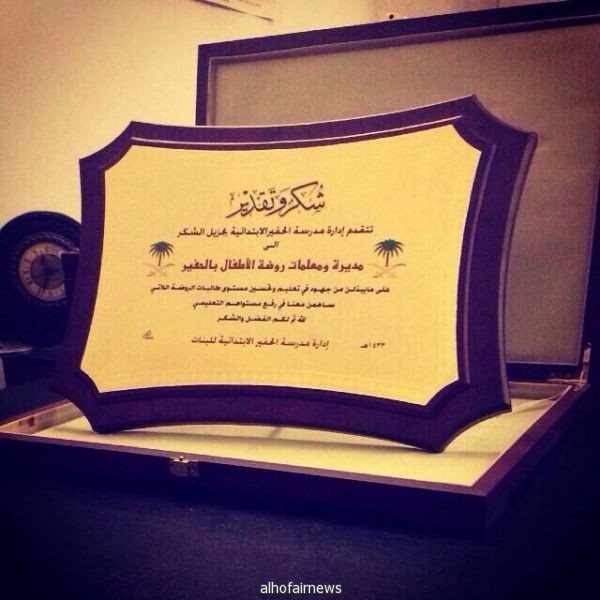 شكر وتقدير
تتقدم إدارة مدرسة الحفير الابتدائية بجزيل الشكر
الى
مديرة ومعلمات روضة الأطفال بالحفير
على مايبذلن من جهود في تعليم وتحسين مستوى طالبات الروضة اللاتي
ساهمن معنا في رفع مستواهم التعليمي
لله ثم لكم الفضل والشكر
إدارة مدرسة الحفير الابتدائية للبنات
١٤٣٣هـ
alhofairnews